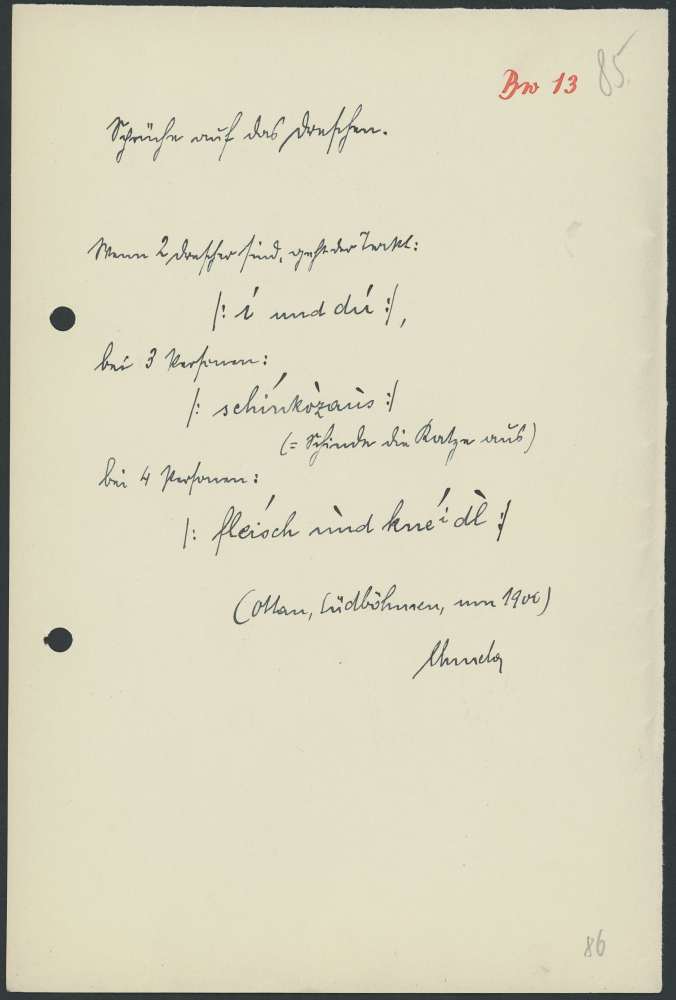 Bro 13 85.
Sprüche auf das Dreschen.
Wenn 2 Drescher sind, geht der Takt:
|: í und dú :|,
bei 3 Personen:
|: schínkòzaùs :|
(= Schinde die Katze aus)
bei 4 Personen:
|: fleísch ùnd kneídl̀ :|
(Ottau, Südböhmen, um 1900)
86